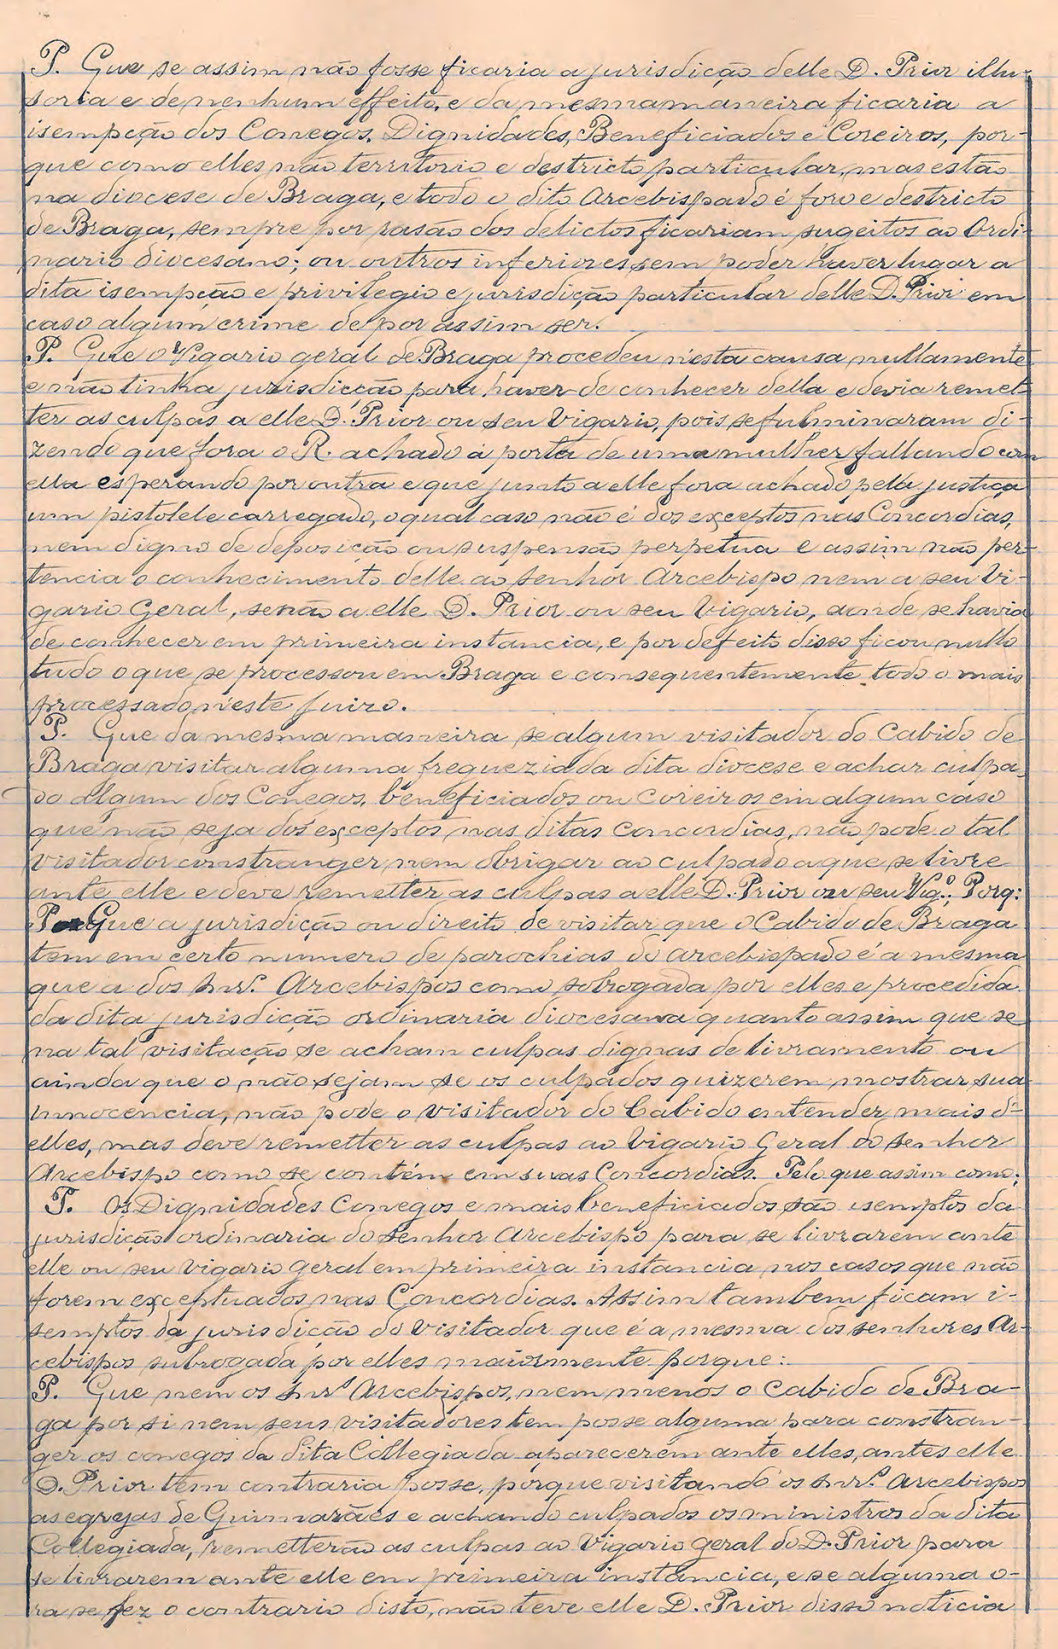 P. Que se assim não fosse ficaria a jurisdição delle D. Prior illu-
soria e de nenhum effeito, e da mesma maneira ficaria a
isempção dos Conegos, Dignidades, Beneficiados e Coreiros, por-
que como elles não territorio e destricto particular, mas estão
na diocese de Braga, e todo o dito Arcebispado é foro e destricto
de Braga, sempre por rasão dos delictos ficariam sugeitos ao Ordi-
nario diocesano; ou outros inferiores, sem poder haver lugar a
dita isempção e privilegio e jurisdição particular delle D. Prior em
caso algum crime de por assim ser.
P. Que o Vigario geral de Braga procedeu n'esta causa nullamente
e não tinha jurisdicção para haver de conhecer della e devia remet-
ter as culpas a elle D. Prior ou seu Vigario, pois se fulminaram di-
zendo que fora o R. achado á porta de uma mulher fallando com
ella esperando por outra e que junto a elle fora achado pella justiça
um pistolete carregado, o qual caso não é dos exceptos nas Concordias,
nem digno de deposição ou suspensão perpetua e assim não per-
tencia o conhecimento delle ao senhor Arcebispo nem a seu Vi-
gario Geral, senão a elle D. Prior ou seu Vigario, aonde se havia
de conhecer em primeira instancia, e por defeito disso ficou nullo
tudo o que se processou em Braga e consequentemente todo o mais
processado n'este Juizo.
P. Que da mesma maneira se algum visitador do Cabido de
Braga visitar alguma freguezia da dita diocese e achar culpa-
do algum dos Conegos, beneficiados ou Coreiros em algum caso
que não seja dos exceptos nas ditas concordias, não pode o tal
visitador constranger nem obrigar ao culpado a que se livre
ante elle e deve remetter as culpas a elle D. Prior ou seu Vig.º, Porq:
P. Que a jurisdição ou direito de visitar que o Cabido de Braga
tem em certo numero de parochias do arcebispado é a mesma
que a dos Snr.s Arcebispos como sobrogada por elles e procedida
da dita jurisdição ordinaria diocesana quanto assim que se
na tal visitação se acham culpas dignas de livramento ou
ainda que o não sejam se os culpados quizerem mostrar sua
innocencia, não pode o visitador do Cabido entender mais d'-
elles, mas deve remetter as culpas ao Vigario Geral do senhor
Arcebispo como se contém em suas Concordias. Pelo que assim como:
P. Os Dignidades Conegos e mais beneficiados são isemptos da
jurisdição ordinaria do senhor Arcebispo para se livrarem ante
elle ou seu vigario geral em primeira instancia nos casos que não
forem exceptuados nas Concordias. Assim tambem ficam i-
semptos da jurisdição do visitador que é a mesma dos senhores Ar-
cebispos subrogada por elles maiormente porque:
P. Que nem os Snr.s Arcebispos, nem menos o Cabido de Bra-
ga por si nem seus visitadores tem posse alguma para constran-
ger os conegos da dita Collegiada aparecerem ante elles, antes elle
D. Prior tem contraria posse, porque visitando os Snr.s Arcebispos
as egrejas de Guimarães e achando culpados os ministros da dita
Collegiada, remetterão as culpas ao Vigario geral do D. Prior para
se livrarem ante elle em primeira instancia, e se alguma o-
ra se fez o contrario disto, não teve elle D. Prior disso noticia